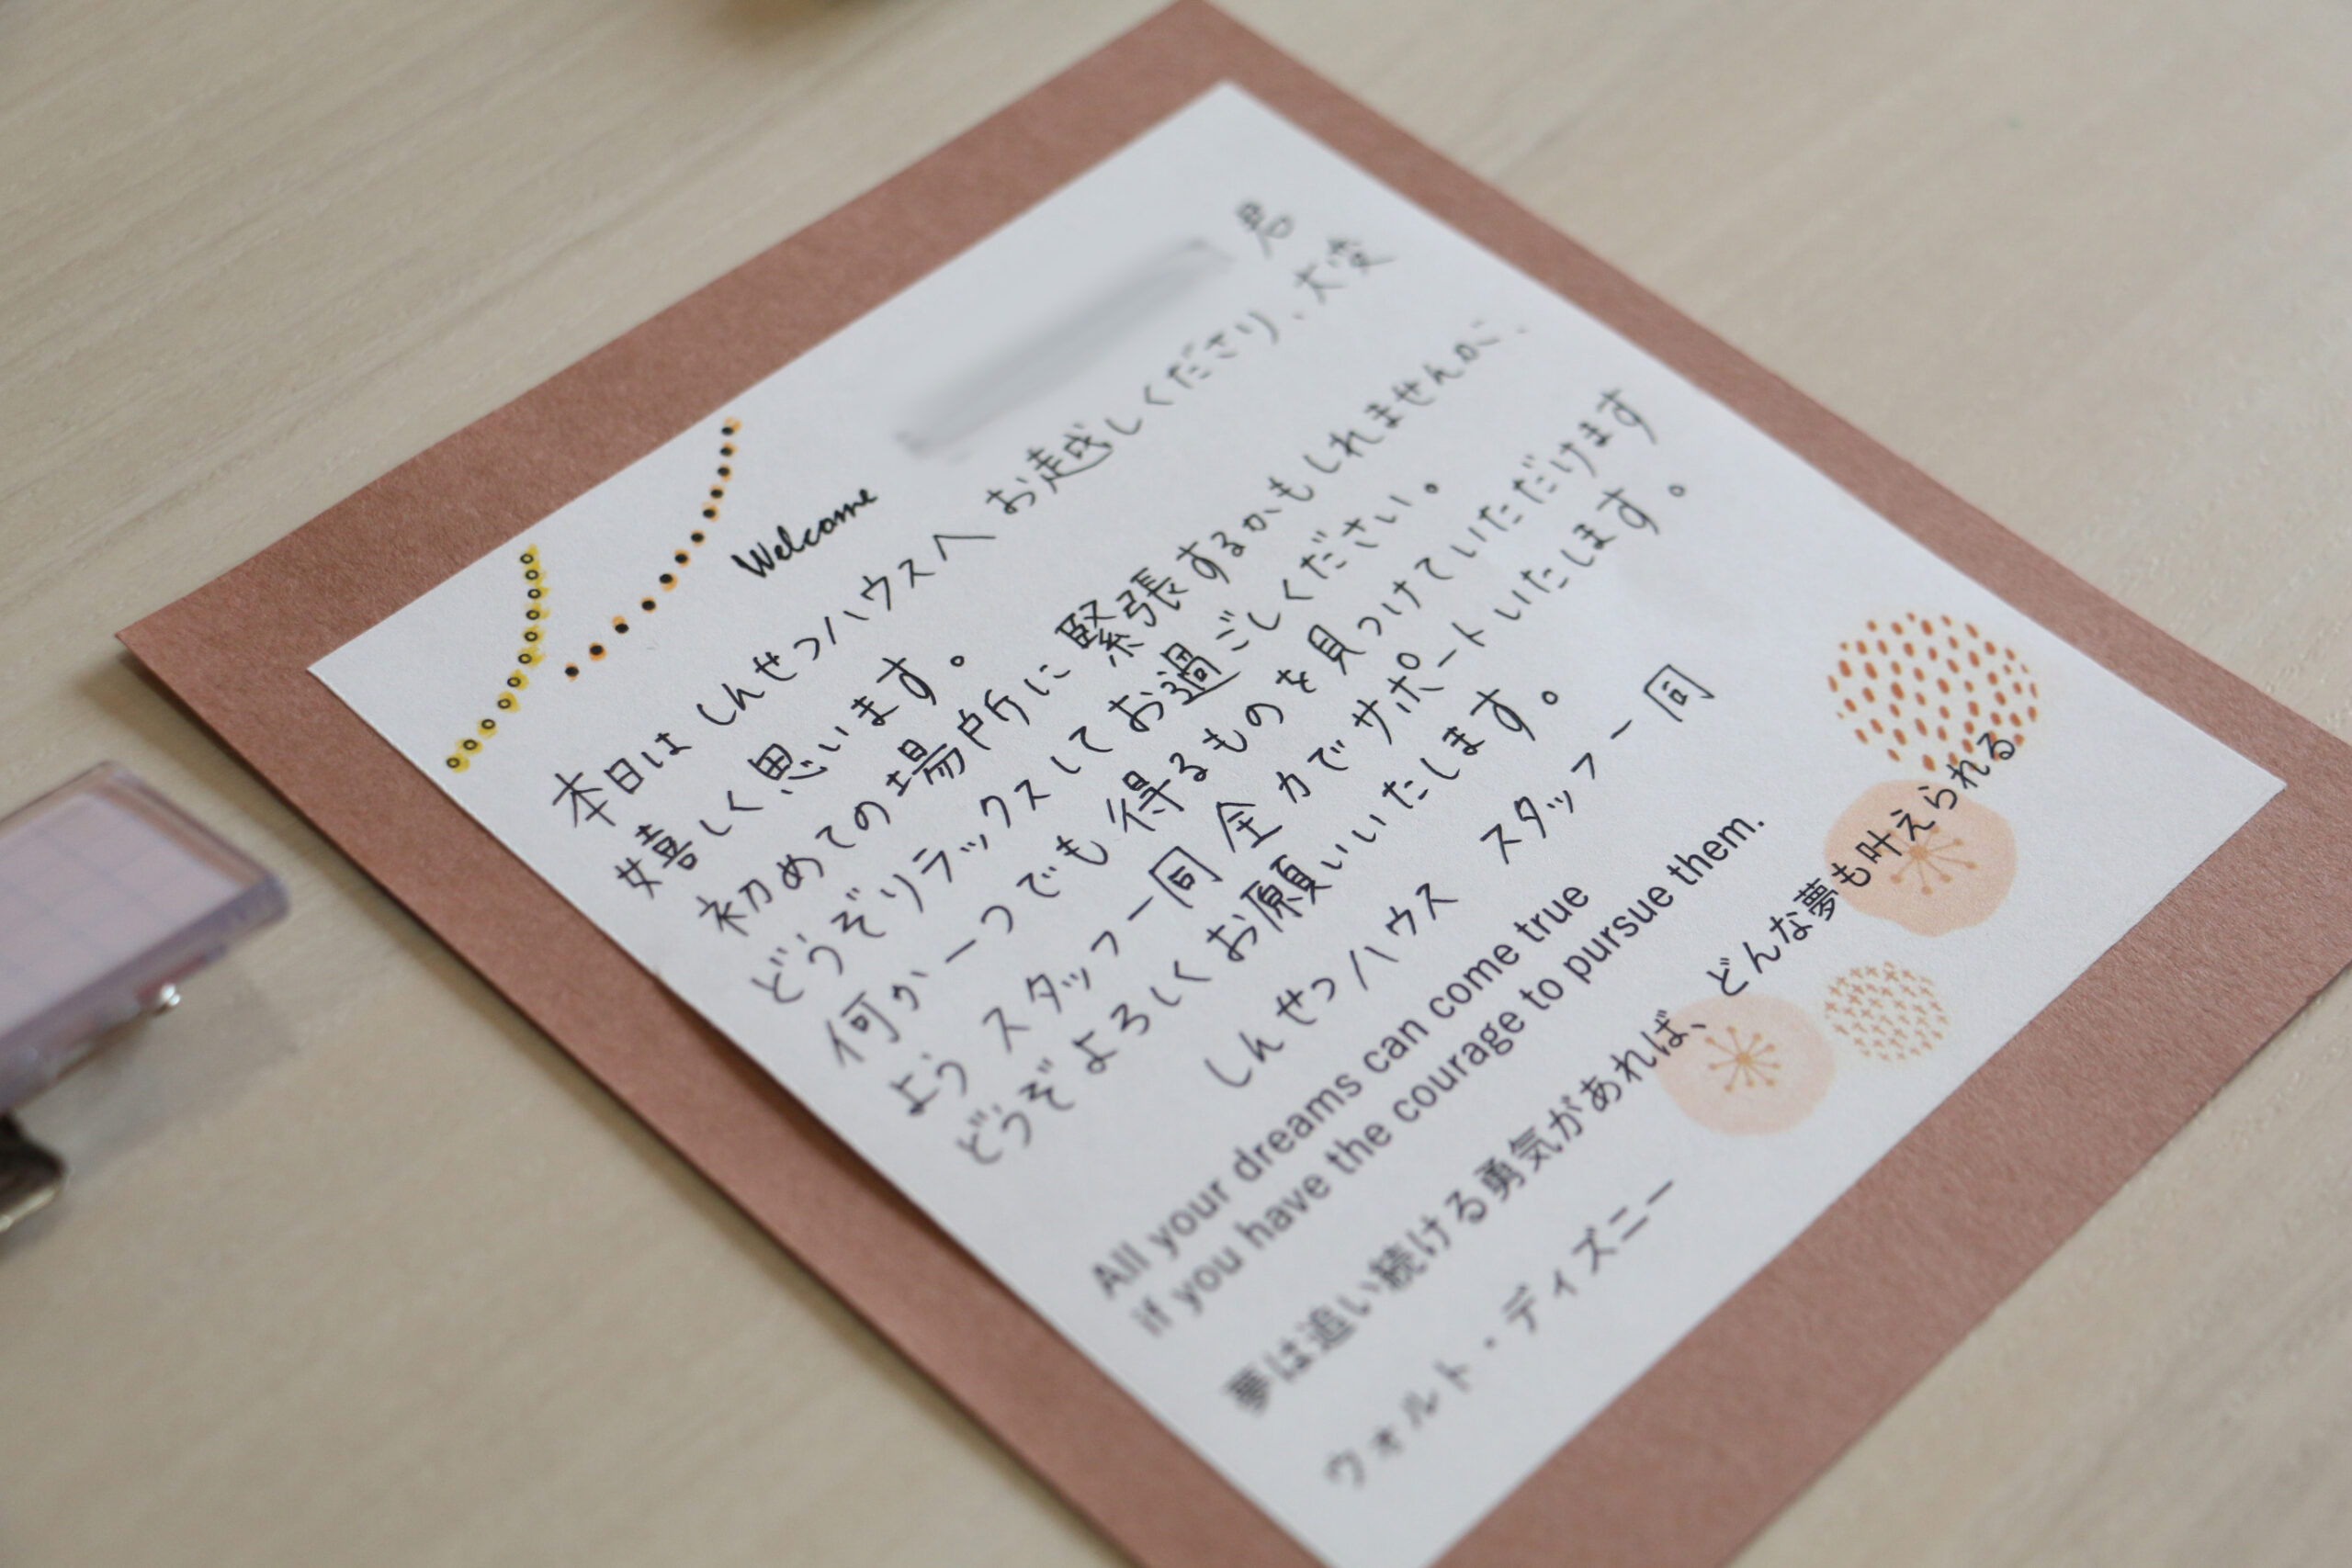 Welcome
君
本日はしんせつハウスへお越しくださり、大変
嬉しく思います。
初めての場所に緊張するかもしれませんが、
どうぞリラックスしてお過ごしください。
何か一つでも得るものを見つけていただけます
よう スタッフ一同 全力でサポートいたします。
どうぞよろしくお願いいたします。
しんせつハウス スタッフ一同
All your dreams can come true
if you have the courage to pursue them.
夢は追い続ける勇気があれば、どんな夢も叶えられる
ウォルト・ディズニー